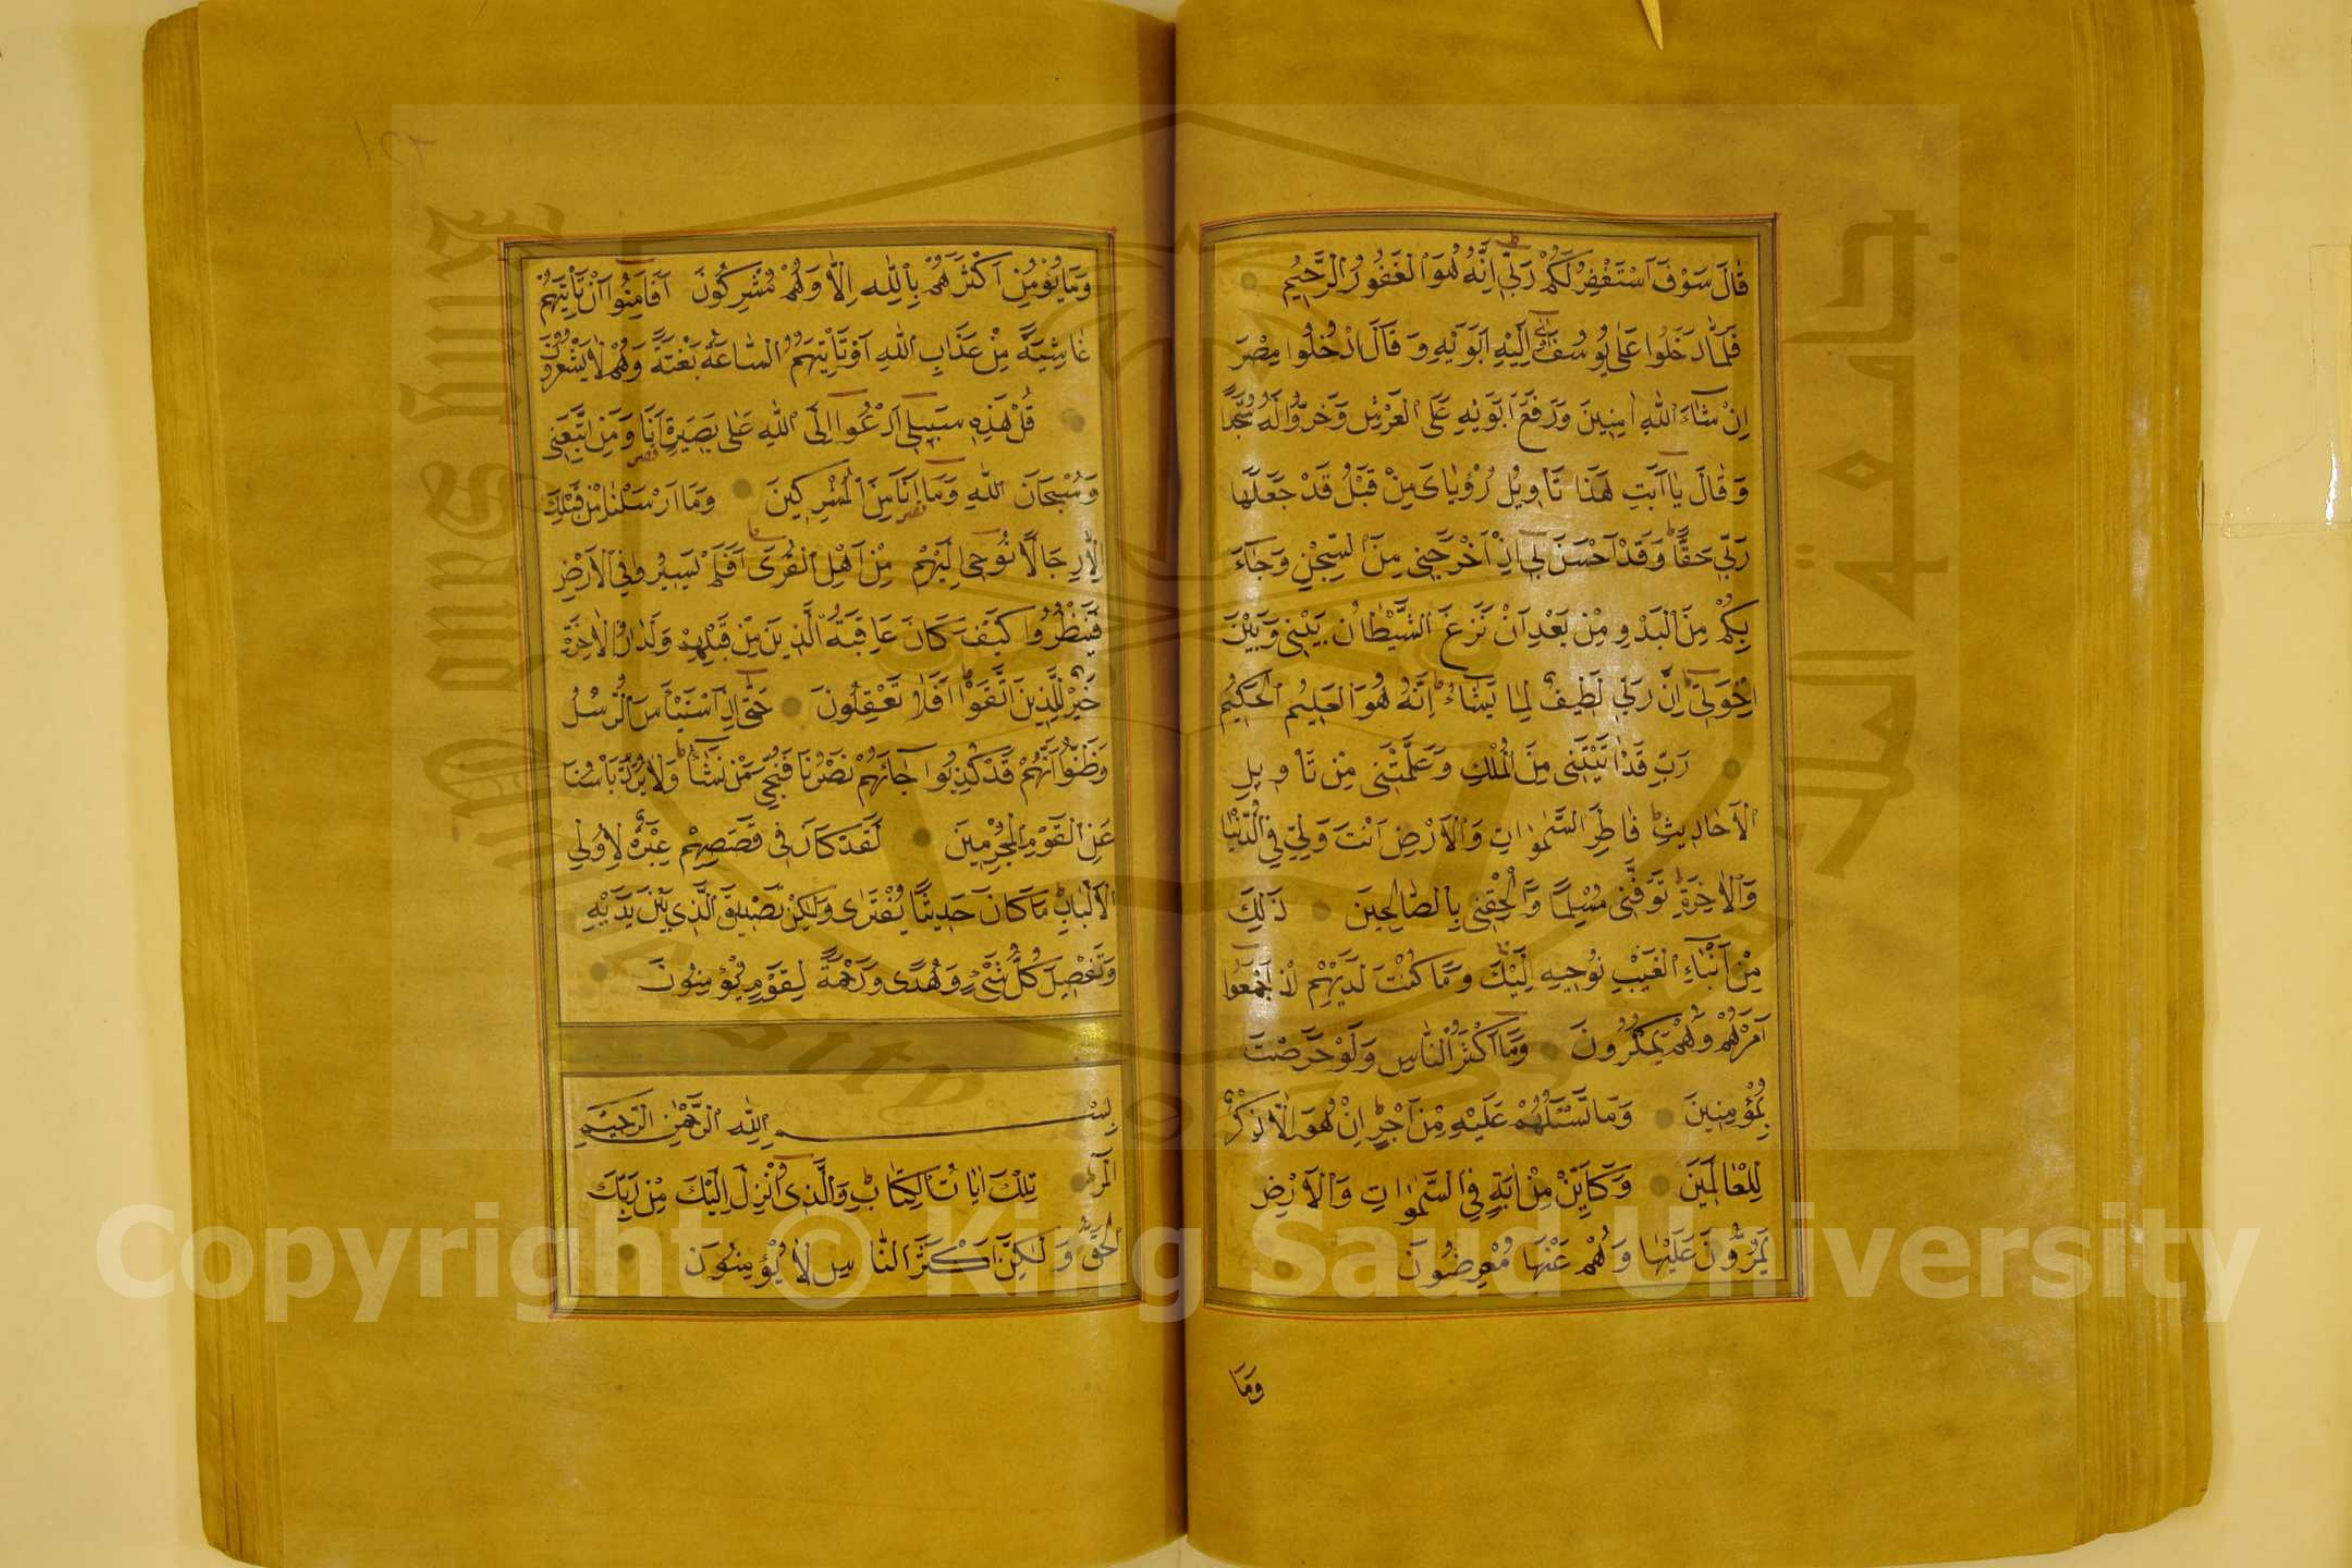 قَالَ سَوْفَ اَسْتَغْفِرُ لَكُمْ رَبّٖى اِنَّهُ هُوَ الْغَفُورُ الرَّحٖيمُ
فَلَمَّا دَخَلُوا عَلٰى يُوسُفَ اٰوٰٓى اِلَيْهِ اَبَوَيْهِ وَ قَالَ ادْخُلُوا مِصْرَ
اِنْ شَاءَ اللّٰهُ اٰمِنٖينَ وَرَفَعَ اَبَوَيْهِ عَلَى الْعَرْشِ وَخَرُّوا لَهُ سُجَّدًا
وَ قَالَ يٰا اَبَتِ هٰذَا تَاْوٖيلُ رُءْيٰاىَ مِنْ قَبْلُ قَدْ جَعَلَهَا
رَبّٖى حَقًّا وَقَدْ اَحْسَنَ بٖى اِذْ اَخْرَجَنٖى مِنَ السِّجْنِ وَجَاءَ
بِكُمْ مِنَ الْبَدْوِ مِنْ بَعْدِ اَنْ نَزَغَ الشَّيْطٰانُ بَيْنٖى وَ بَيْنَ
اِخْوَتٖى اِنَّ رَبّٖى لَطٖيفٌ لِمٰا يَشَاءُ اِنَّهُ هُوَ الْعَلٖيمُ الْحَكٖيمُ
رَبِّ قَدْ اٰتَيْتَنٖى مِنَ الْمُلْكِ وَعَلَّمْتَنٖى مِنْ تَاْوٖيلِ
الْاَحَادٖيثِ فَاطِرَ السَّمٰوٰاتِ وَالْاَرْضِ اَنْتَ وَلِيّٖ فِي الدُّنْيٰا
وَالْاٰخِرَةِ تَوَفَّنٖى مُسْلِمًا وَاَلْحِقْنٖى بِالصَّالِحٖينَ ذٰلِكَ
مِنْ اَنْبَاءِ الْغَيْبِ نُوحٖيهِ اِلَيْكَ وَمَا كُنْتَ لَدَيْهِمْ اِذْ اَجْمَعُوا
اَمْرَهُمْ وَهُمْ يَمْكُرُونَ وَمَا اَكْثَرُ النَّاسِ وَلَوْ حَرَصْتَ
بِمُؤْمِنٖينَ وَمَا تَسْئَلُهُمْ عَلَيْهِ مِنْ اَجْرٍ اِنْ هُوَ اِلَّا ذِكْرٌ
لِلْعَالَمٖينَ وَكَاَيِّنْ مِنْ اٰيَةٍ فِي السَّمٰوٰاتِ وَالْاَرْضِ
يَمُرُّونَ عَلَيْهَا وَهُمْ عَنْهَا مُعْرِضُونَ
وَمَا
وَمَا يُؤْمِنُ اَكْثَرُهُمْ بِاللّٰهِ اِلَّا وَهُمْ مُشْرِكُونَ اَفَاَمِنُوا اَنْ تَاْتِيَهُمْ
غَاشِيَةٌ مِنْ عَذَابِ اللّٰهِ اَوْ تَاْتِيَهُمُ السَّاعَةُ بَغْتَةً وَهُمْ لَا يَشْعُرُونَ
قُلْ هٰذِهٖ سَبٖيلٖى اَدْعُوا اِلَى اللّٰهِ عَلٰى بَصٖيرَةٍ اَنَا وَمَنِ اتَّبَعَنٖى
وَسُبْحَانَ اللّٰهِ وَمَا اَنَا مِنَ الْمُشْرِكٖينَ وَمَا اَرْسَلْنَا مِنْ قَبْلِكَ
اِلَّا رِجَالًا نُوحٖى اِلَيْهِمْ مِنْ اَهْلِ الْقُرٰى اَفَلَمْ يَسٖيرُوا فِي الْاَرْضِ
فَيَنْظُرُوا كَيْفَ كَانَ عَاقِبَةُ الَّذٖينَ مِنْ قَبْلِهِمْ وَلَدَارُ الْاٰخِرَةِ
خَيْرٌ لِلَّذٖينَ اتَّقَوْا اَفَلَا تَعْقِلُونَ حَتّٰى اِذَا اسْتَيْاَسَ الرُّسُلُ
وَظَنُّوا اَنَّهُمْ قَدْ كُذِبُوا جَاءَهُمْ نَصْرُنَا فَنُجِّيَ مَنْ نَشَاءُ وَلَا يُرَدُّ بَاْسُنَا
عَنِ الْقَوْمِ الْمُجْرِمٖينَ لَقَدْ كَانَ فٖى قَصَصِهِمْ عِبْرَةٌ لِاُولِي
الْاَلْبَابِ مَا كَانَ حَدٖيثًا يُفْتَرٰى وَلٰكِنْ تَصْدٖيقَ الَّذٖى بَيْنَ يَدَيْهِ
وَتَفْصٖيلَ كُلِّ شَىْءٍ وَهُدًى وَرَحْمَةً لِقَوْمٍ يُؤْمِنُونَ
بِسْمِ اللّٰهِ الرَّحْمٰنِ الرَّحٖيمِ
الٓمٓرٰ تِلْكَ اٰيَاتُ الْكِتَابِ وَالَّذٖى اُنْزِلَ اِلَيْكَ مِنْ رَبِّكَ
الْحَقُّ وَ لٰكِنَّ اَكْثَرَ النَّاسِ لَا يُؤْمِنُونَ
Copyright © King Saud University